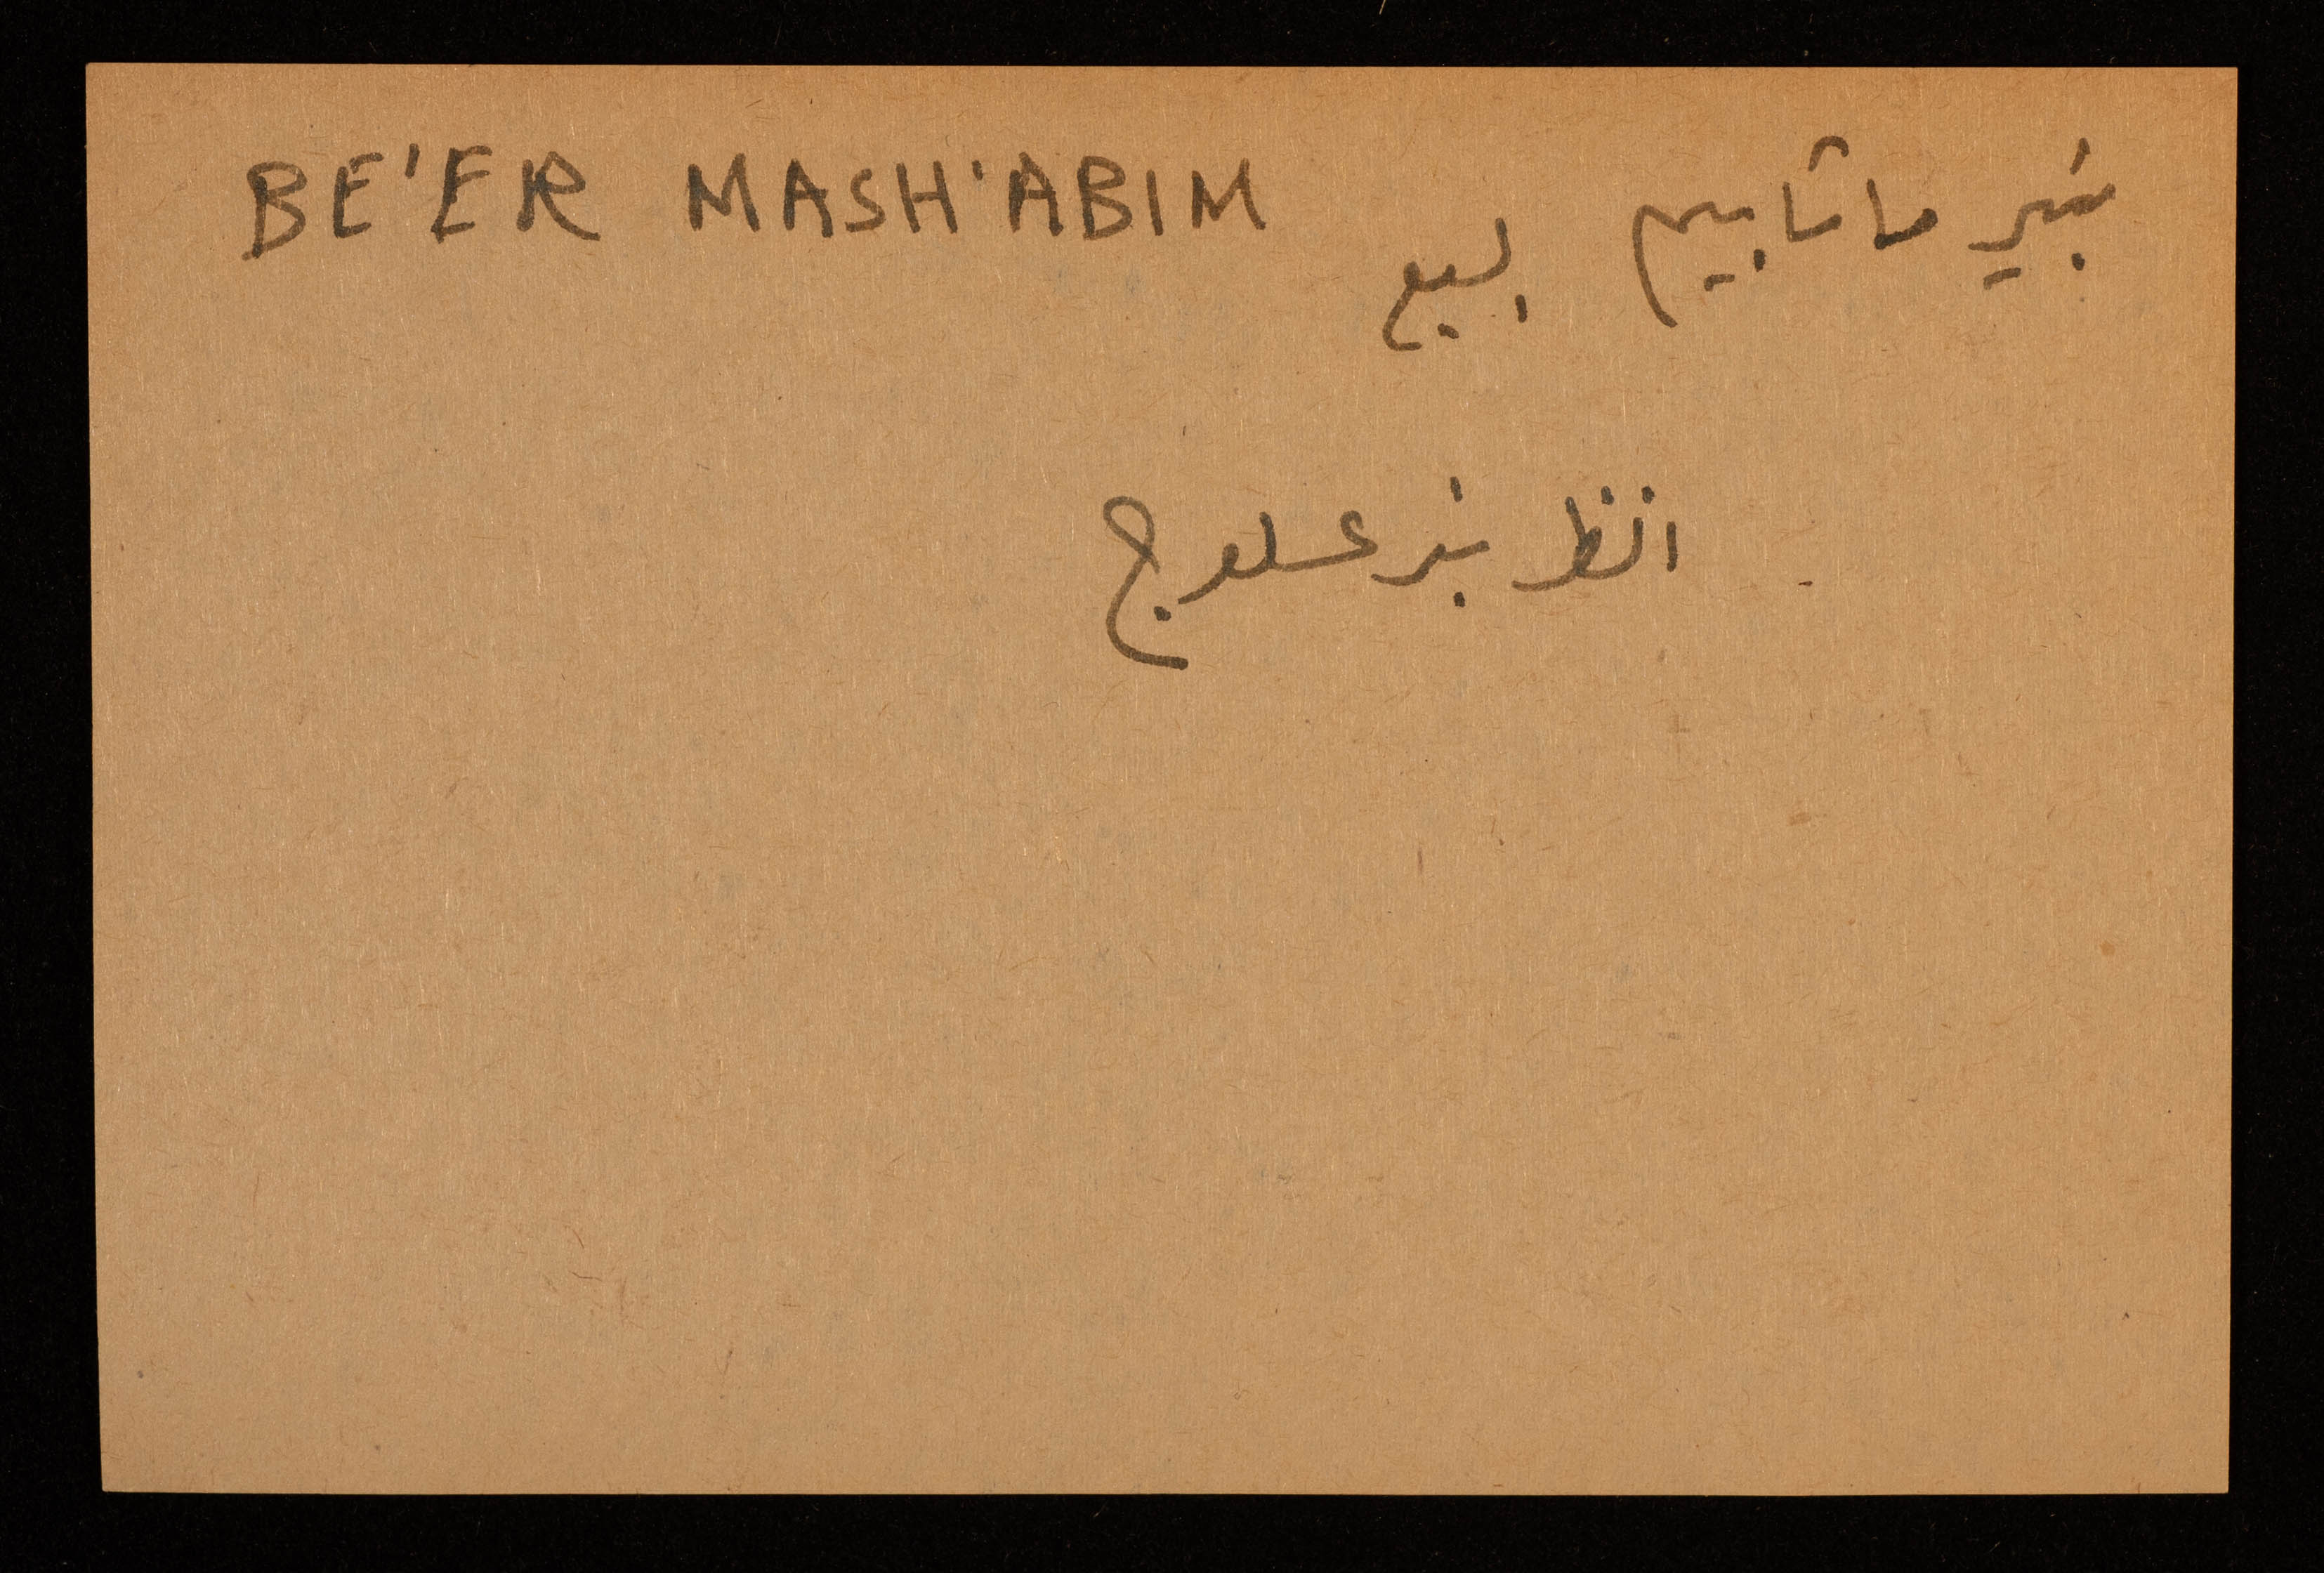 بئير ماشابيم لسبع BE'ER MASH'ABIM
انظر بئر عسلوج